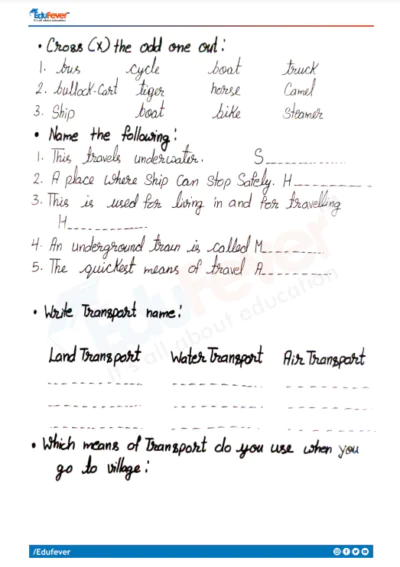 EduFever
It's all about education
• Cross (X) the odd one out:
1. bus cycle boat truck
2. bullock-cart tiger horse Camel
3. Ship boat bike Steamer
• Name the following:
1. This travels underwater. S__________
2. A place where Ship Can Stop Safely. H__________
3. This is used for living in and for travelling
H__________
4. An underground train is called M__________
5. The quickest means of travel A__________
• Write Transport name:
Land Transport Water Transport Air Transport
• Which means of Transport do you use when you
go to village:
EduFever
It's all about education
/Edufever